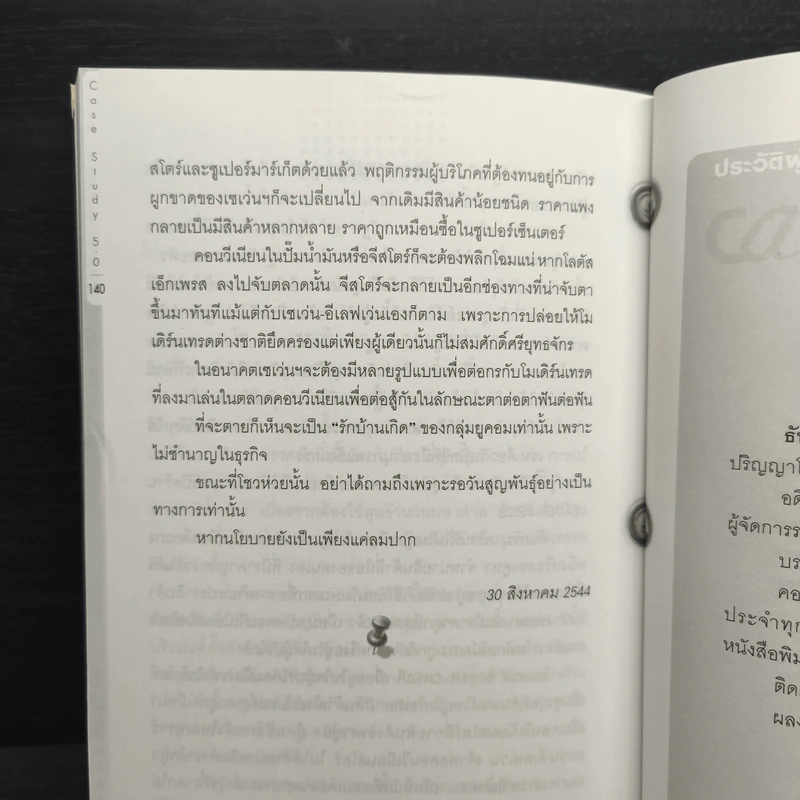 Case Study 5.0
140
สโตร์และซูเปอร์มาร์เก็ตด้วยแล้ว พฤติกรรมผู้บริโภคที่ต้องทนอยู่กับการ
ผูกขาดของเซเว่นฯก็จะเปลี่ยนไป จากเดิมมีสินค้าน้อยชนิด ราคาแพง
กลายเป็นมีสินค้าหลากหลาย ราคาถูกเหมือนซื้อในซูเปอร์เซ็นเตอร์
คอนวีเนียนในปั๊มน้ำมันหรือจีสโตร์ก็จะต้องพลิกโฉมแน่ หากโลตัส
เอ็กเพรส ลงไปจับตลาดนั้น จีสโตร์จะกลายเป็นอีกช่องทางที่น่าจับตา
ขึ้นมาทันทีแม้แต่กับเซเว่น-อีเลฟเว่นเองก็ตาม เพราะการปล่อยให้โม
เดิร์นเทรดต่างชาติยึดครองแต่เพียงผู้เดียวนั้นก็ไม่สมศักดิ์ศรียุทธจักร
ในอนาคตเซเว่นฯจะต้องมีหลายรูปแบบเพื่อต่อกรกับโมเดิร์นเทรด
ที่ลงมาเล่นในตลาดคอนวีเนียนเพื่อต่อสู้กันในลักษณะตาต่อตาฟันต่อฟัน
ที่จะตายก็เห็นจะเป็น "รักบ้านเกิด" ของกลุ่มยูคอมเท่านั้น เพราะ
ไม่ชำนาญในธุรกิจ
ขณะที่โชวห่วยนั้น อย่าได้ถามถึงเพราะรอวันสูญพันธุ์อย่างเป็น
ทางการเท่านั้น
หากนโยบายยังเป็นเพียงแค่ลมปาก
30 สิงหาคม 2544
ประวัติผู้
ca
ธัน
ปริญญาโ
อดี
ผู้จัดการร
บร
คอ
ประจำทุก
หนังสือพิม
ติด
ผลง